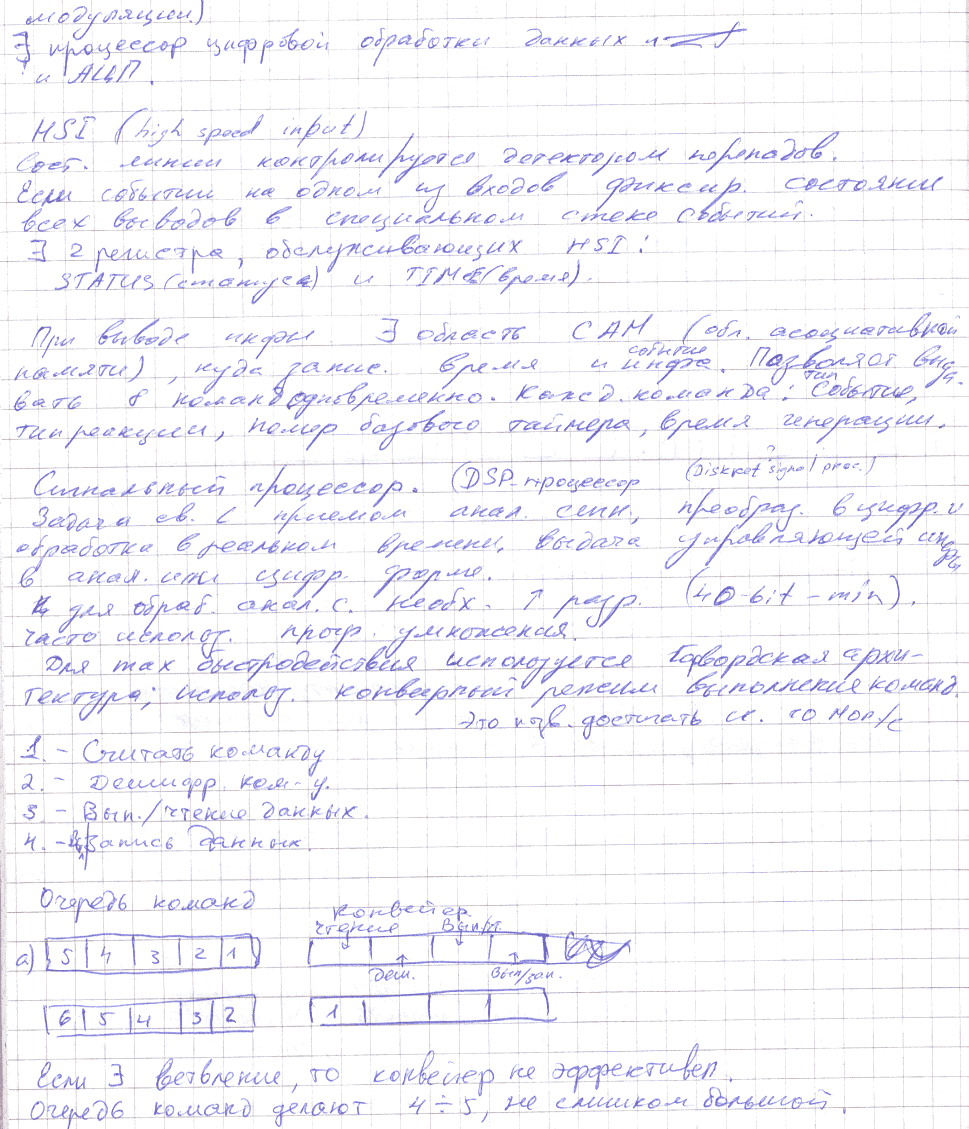 модуляции.)
∃ процессор цифровой обработки данных
и АЦП.
HSI (high speed input)
Сост. линии контролируется детектором перепадов.
Если событие на одном из входов фиксир. состояние
всех выводов в специальном стеке событий.
∃ 2 регистра, обслуживающих HSI:
STATUS (статуса) и TIME (время).
При выводе инфы ∃ область CAM (обл. асоциативной
памяти), куда запис. время и событие инфа. Позволяет выда-
вать 8 команд одновременно. Кажд. команда: тип события,
тип реакции, номер базового таймера, время генерации.
Сигнальный процессор. (DSP-процессор (Diskret signal proc.) ?
Задача св. с приемом анал. сигн., преобраз. в цифр. и
обработка в реальном времени, выдача управляющей инфы
в анал. или цифр. форме.
для обраб. анал. с. необх. ↑ разр. (40-bit - min).
часто использ. прогр. умножения.
Для max быстродействия используется Гарвардская архи-
тектура; использ. конвеерный режим выполнения команд.
Это позв. достигать
1. - Считать команду
2. - Дешифр. ком-у.
3 - Вып./чтение данных.
4. - Запись данных.
Очередь команд
Конвейер
чтение Вып/чт.
а) 5 4 3 2 1
Деш. Вып/зап.
6 5 4 3 2 1
Если ∃ ветвление, то конвейер не эффективен.
Очередь команд делают 4÷5, не слишком большой.